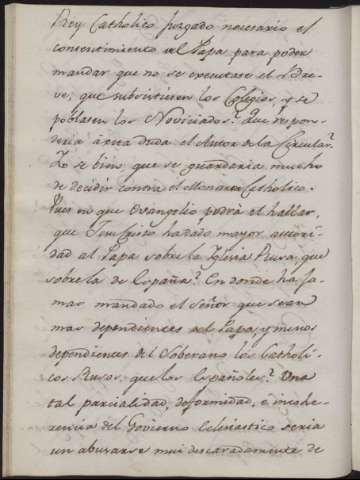 Rey Catholico juzgado necesario el
consentimiento del Papa para poder
mandar que no se executase el Bre-
ve, que subsistiesen los Colegios, y se
poblasen los Noviciados? Que respon-
deria à esta duda el Autor de la Circular?
Yo se bien, que se guardaria mucho
de decidir contra el Monarca Catholico.
Pues en que Evangelio podrà el hallar,
que Jesu Christo ha dado mayor autori-
dad al Papa sobre la Iglesia Rusa, que
sobre la de España? En donde ha ja-
mas mandado el Señor que sean
mas dependientes del Papa, y menos
dependientes del Soberano los Catholi-
cos Rusos, que los Españoles? Una
tal parcialidad, deformidad, è incohe-
rencia del Govierno Eclesiastico seria
un abusarse mui descaradamente de